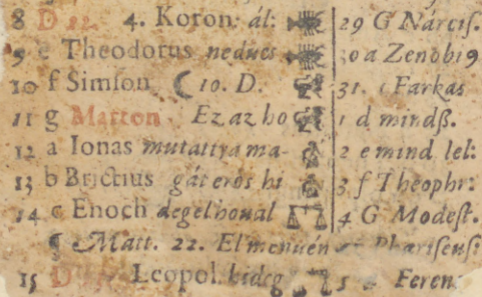 8 D 22. 4. Koron. ál: 29 G Nárciſ.
9 e Theodorus nedues 30 a Zenobi9
10 f Simſon ☾ 10. D. 31. c Farkas
11 g Marton Ez az ho 1 d mindß.
12 a Ionas mutattya ma- 2 e mind lel:
13 b Brictius gát erös hi 3 f Theophr:
14 c Enoch degel houal 4 G Modeſt.
¶ Matt. 22. El menuén Phariſeuſ:
15 D Leopol. hideg 5 Feren